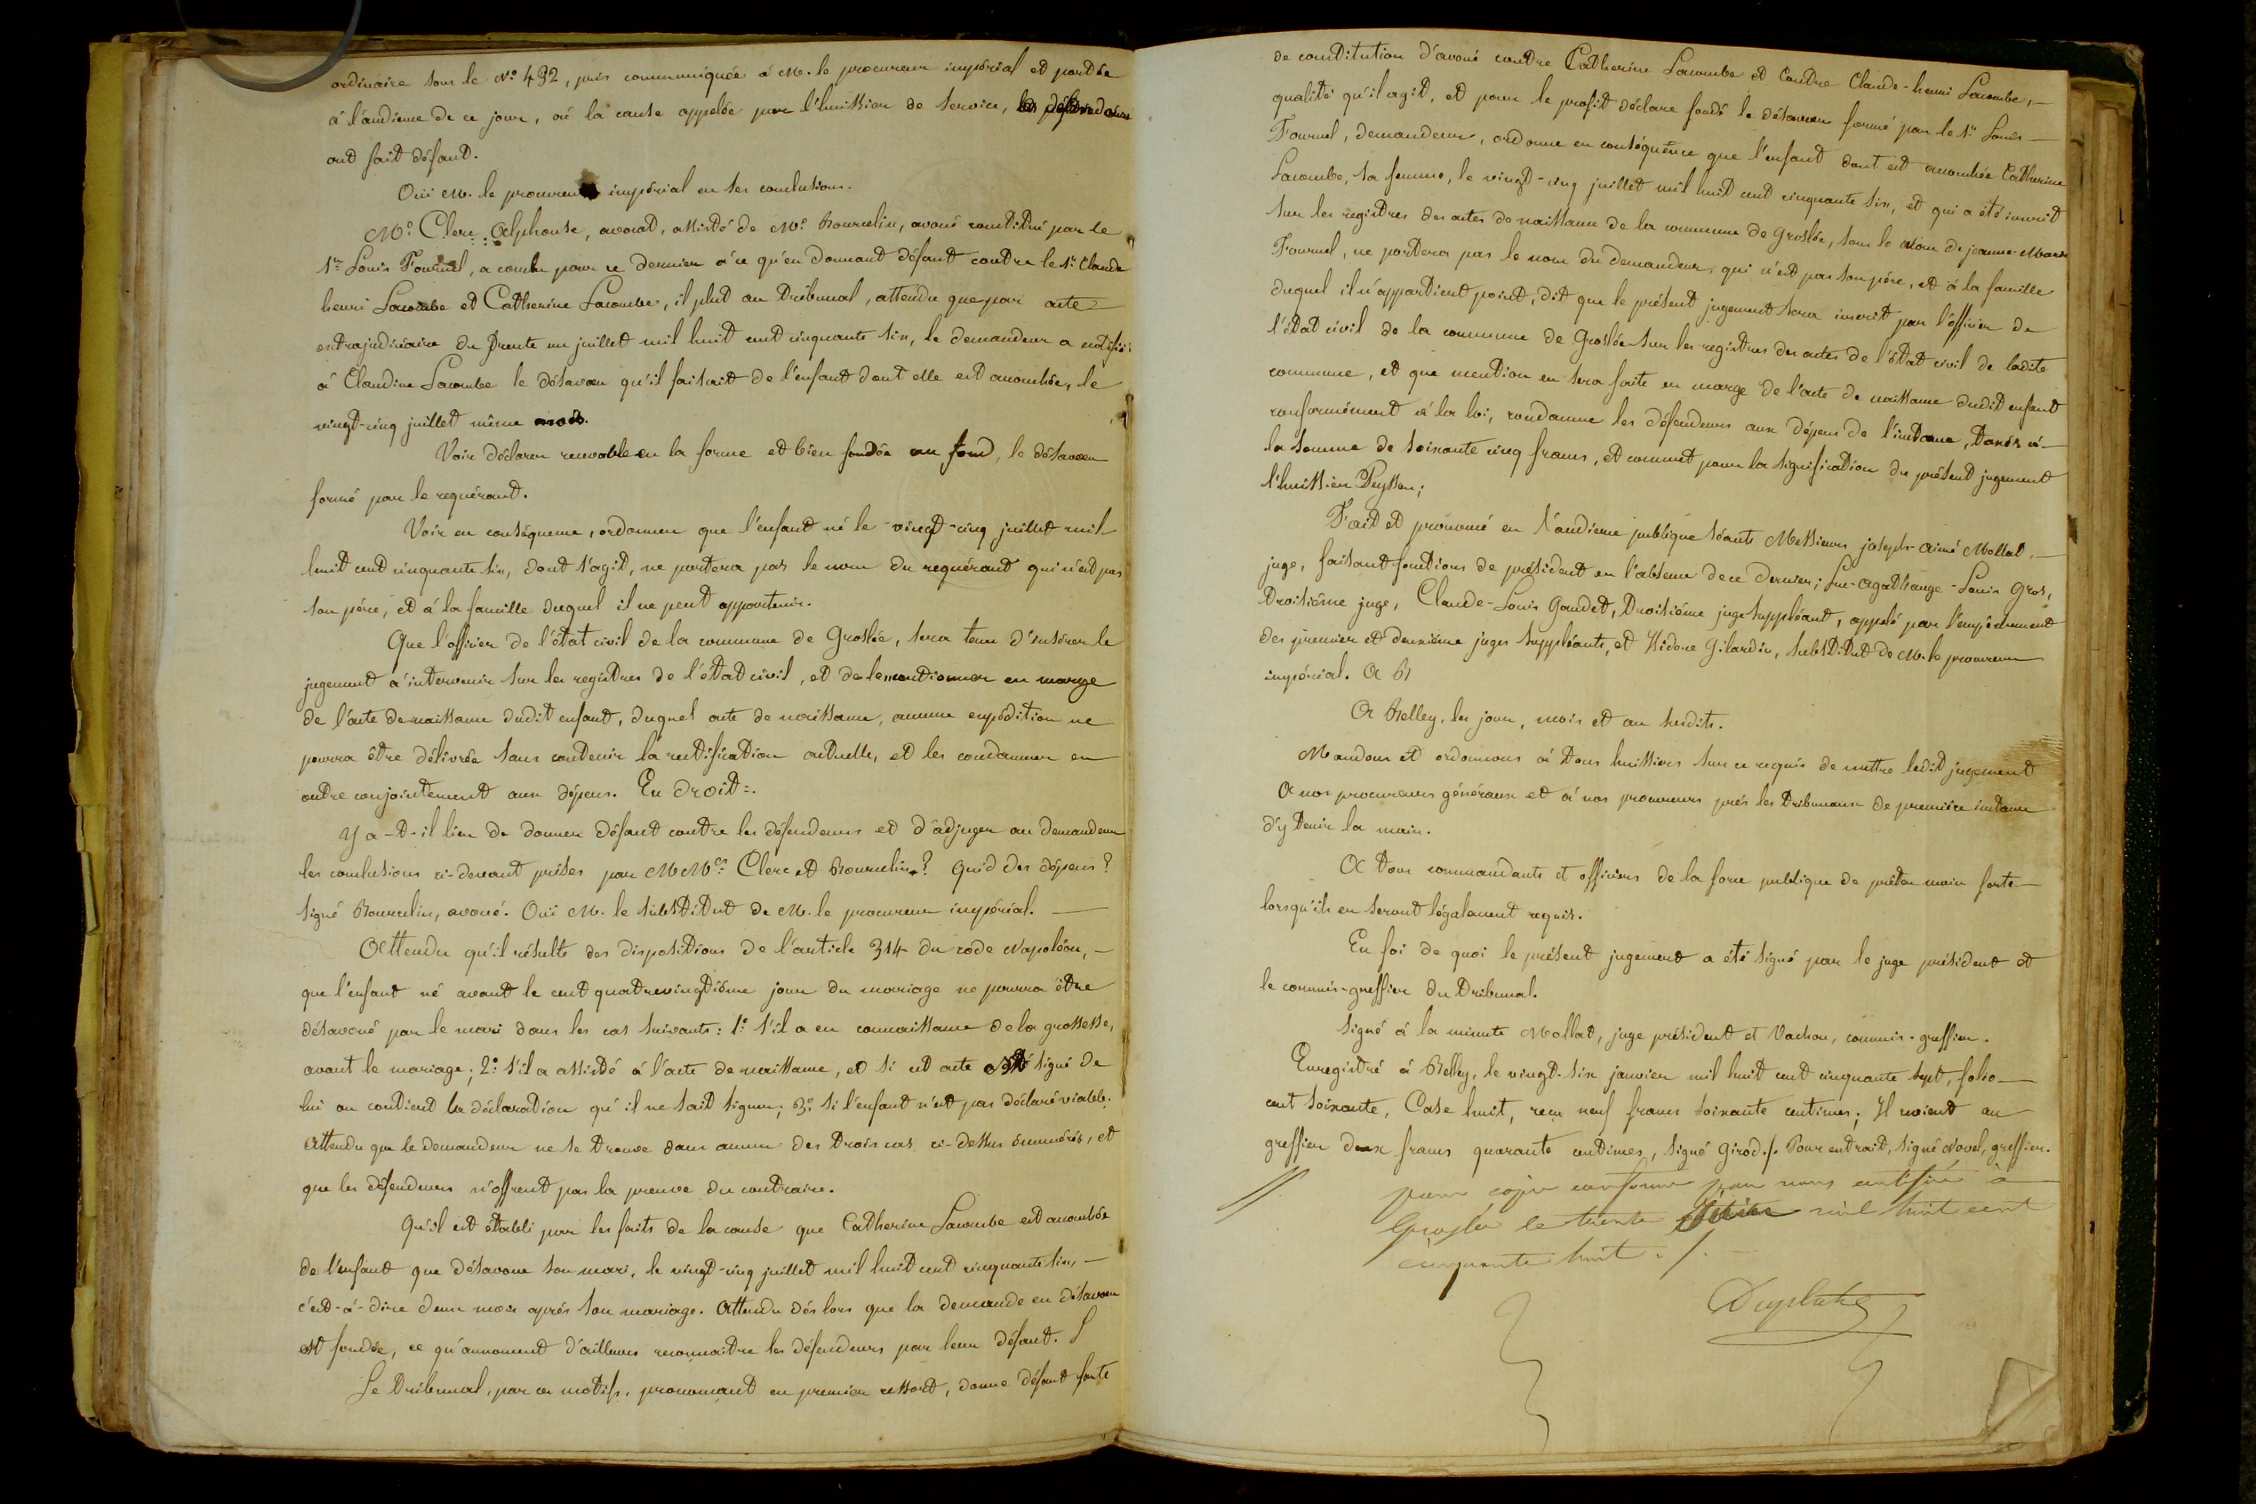 ordinaire sous le N.° 492, puis communiquée à M. le procureur impérial et portée
à l'audience de ce jour, où la cause appelée par l'huissier de service, les défendeurs
ont fait défaut.
Oui M. le procureur impérial en ses conclusions.
M.e Clerc Alphonse, avocat, assisté de M.e Bourcelin, avoué constitué par le
S.r Louis Fournel, a conclu pour ce dernier à ce qu'en donnant défaut contre le S.r Claude
henri Lacombe et Catherine Lacombe, il plut au Tribunal, attendu que par acte
extrajudiciaire du trente un juillet mil huit cent cinquante six, le demandeur a notifié
à Claudine Lacombe le désaveu qu'il faisait de l'enfant dont elle est accouchée, le
vingt-cinq juillet même mois.
Voir déclarer recevable en la forme et bien fondée au fond, le désaveu
formé par le requérant.
Voir en conséquence, ordonner que l'enfant né le vingt-cinq juillet mil
huit cent cinquante six, dont s'agit, ne portera pas le nom du requérant qui n'est pas
son père, et à la famille duquel il ne peut appartenir.
Que l'officier de l'état civil de la commune de Groslée, sera tenu d'insérer le
jugement à intervenir sur les registres de l'état civil, et de le mentionner en marge
de l'acte de naissance dudit enfant, duquel acte de naissance, aucune expédition ne
pourra être délivrée sans contenir la rectification actuelle, et les condamner en
outre conjointement aux dépens. En droit:.
Y a-t-il lieu de donner défaut contre les défendeurs et d'adjuger au demandeur
les conclusions ci-devant prises par M M.es Clerc et Bourcelin? Quid des dépens?
signé Bourcelin, avoué. Oui M. le substitut de M. le procureur impérial.
Attendu qu'il résulte des dispositions de l'article 314 du code Napoléon, —
que l'enfant né avant le cent quatrevingtième jour du mariage ne pourra être
désavoué par le mari dans les cas suivants: 1.° s'il a eu connaissance de la grossesse,
avant le mariage; 2.° s'il a assisté à l'acte de naissance, et si cet acte est signé de
lui ou contient la déclaration qu'il ne sait signer; 3.° si l'enfant n'est pas déclaré viable.
Attendu que le demandeur ne se trouve dans aucun des trois cas ci-dessus énumérés, et
que les défendeurs n'offrent pas la preuve du contraire.
Qu'il est établi par les faits de la cause que Catherine Lacombe est accouchée
de l'enfant que désavoue son mari, le vingt-cinq juillet mil huit cent cinquante six, —
c'est-à-dire deux mois après son mariage. Attendu dès lors que la demande en désaveu
est fondée, ce qu'annoncent d'ailleurs reconnaitre les défendeurs par leur défaut.
Le Tribunal, par ces motifs, prononçant en premier ressort, donne défaut faute
de constitution d'avoué contre Catherine Lacombe et contre Claude-henri Lacombe, —
qualité qu'il agit, et pour le profit déclare fondé le désaveu formé par le S.r Louis —
Fournel, demandeur, ordonne en conséquence que l'enfant dont est accouchée Catherine
Lacombe, sa femme, le vingt-cinq juillet mil huit cent cinquante six, et qui a été inscrit
sur les registres des actes de naissance de la commune de Groslée, sous le nom de jeanne-Marie
Fournel, ne portera pas le nom du demandeur, qui n'est pas son père, et à la famille
duquel il n'appartient point, dit que le présent jugement sera inscrit par l'officier de
l'état civil de la commune de Groslée sur les registres des actes de l'état civil de ladite
commune, et que mention en sera faite en marge de l'acte de naissance dudit enfant
conformément à la loi, condamne les défendeurs aux dépens de l'instance, taxés à —
la somme de soixante cinq francs, et commet pour la signification du présent jugement
l'huissier Peysson;
Fait et prononcé en l'audience publique séants Messieurs joseph-aimé Mollat. —
juge, faisant fonctions de président en l'absence de ce dernier; Luc-Agathange-Louis Gros,
troisième juge, Claude-Louis Gaudet, troisième juge suppléant, appelé par l'empêchement
des premier et deuxième juges suppléants, et Isidore Gilardin, substitut de M. le procureur
impérial. A B
A Belley, les jour, mois et an susdits.
Mandons et ordonnons à tous huissiers sur ce requis de mettre ledit jugement
A nos procureurs généraux et à nos procureurs près les tribunaux de première instance
d'y tenir la main.
A tous commandants et officiers de la force publique de prêter main forte —
lorsqu'ils en seront légalement requis.
En foi de quoi le présent jugement a été signé par le juge président et
le commis-greffier du Tribunal.
Signé à la minute Mollat, juge président et Vachon, commis-greffier.
Enregistré à Belley, le vingt-six janvier mil huit cent cinquante sept, folio —
cent soixante, Case huit, reçu neuf francs soixante centimes; Il revient au
greffier deux francs quarante centimes, signé Girod./. Pour extrait, signé Novel, greffier.
pour copie conforme par nous certifiée à
Groslée le trente mil huit cent
cinquante huit./.
Duplatre